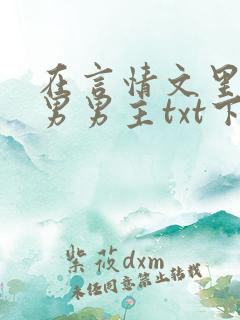 在言情文里
男男主txt下
紫莜dxm
未经同意禁止转载